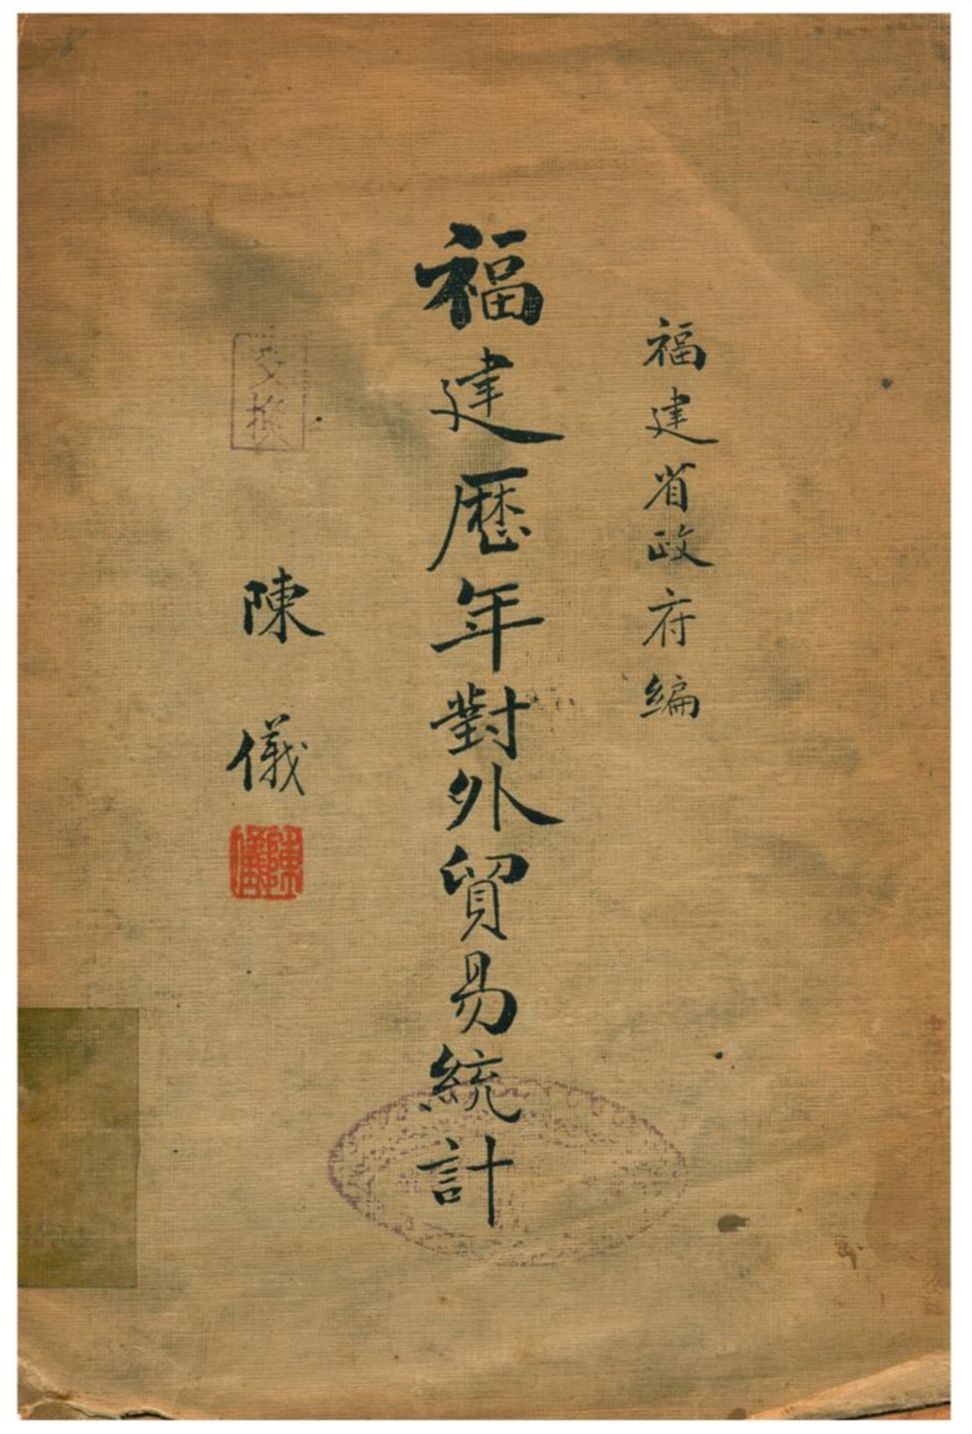 福建省政府編
福建歷年對外貿易統計
陳儀
交換
陳儀